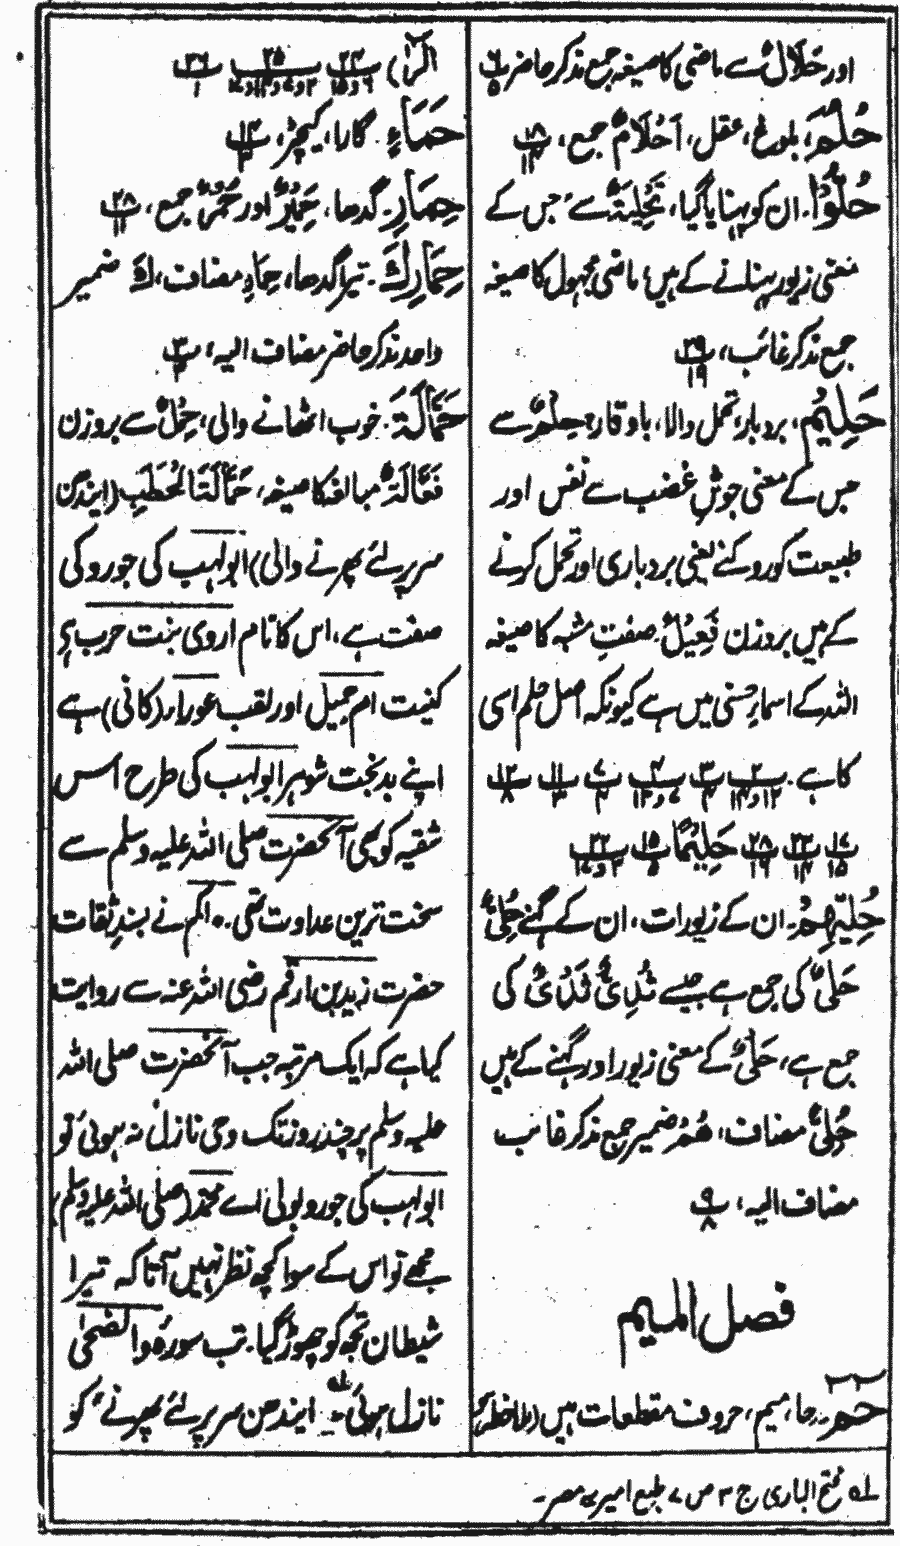 اور حَلَالٌ سے ماضی کا صیغہ جمع مذکر حاضر ۶/۵
حُلُمَ، بلوغ، عقل، اَحْلَامٌ جمع، ۱۸/۱۴
حُلُّوْا۔ ان کو پہنایا گیا، تَحْلِیَۃٌ سے، جس کے
معنی زیور پہنانے کے ہیں، ماضی مجہول کا صیغہ
جمع مذکر غائب، ۲۹/۱۹
حَلِیْمٌ، بردبار، تحمل والا، باوقار، حِلْمٌ سے
جس کے معنی جوشِ غضب سے نفس اور
طبیعت کو روکنے یعنی بردباری اور تحمل کرنے
کے ہیں بروزن فَعِیْلٌ۔ صفتِ مشبہ کا صیغہ
اللہ کے اسماءِ حسنیٰ میں سے کیونکہ اصل حلم اسی
کا ہے۔ ۲/۱۲و۱۴ ۳/۴ ۴/۷و۱۳ ۷/۴ ۱۱/۳ ۱۲/۸
۱۷/۱۵ ۲۲/۱۴ ۲۸/۱۶ حَلِیْمًا ۱۵/۵ ۲۲/۳و۱۷
حُلِیِّھِمْ۔ ان کے زیورات، ان کے گہنے حُلِیٌّ
حَلْیٌ کی جمع ہے جیسے ثُدِیٌّ ثَدْیٌ کی
جمع ہے، حَلْیٌ کے معنی زیور اور گہنے کے ہیں
حُلِیِّ مضاف، ھُمْ ضمیر جمع مذکر غائب
مضاف الیہ، ۹/۸
فصل المیم
حٰمٓ۔ حا، میم، حروف مقطعات ہیں (ملاحظہ ہو
الٓرٰ) ۲۴/۶و۱۵ ۲۵ ۲۶/۱
حَمَاٍ۔ گارا، کیچڑ، ۱۴/۳
حِمَارٍ۔ گدھا، حَمِیْرٌ اور حُمُرٌ جمع، ۲۸/۱۱
حِمَارِكَ۔ تیرا گدھا، حِمَارِ مضاف، كَ ضمیر
واحد مذکر حاضر مضاف الیہ، ۳/۳
حَمَّالَۃَ۔ خوب اٹھانے والی، حَمْلٌ سے بروزن
فَعَّالَۃٌ مبالغہ کا صیغہ، حَمَّالَۃَ الْحَطَبِ (ایندھن
سر پر لئے پھرنے والی) ابو لہب کی جورو کی
صفت ہے، اس کا نام اروی بنت حرب ہے
کنیت ام جمیل اور لقب عوراء (کانی) ہے
اپنے بدبخت شوہر ابو لہب کی طرح اس
شقیہ کو بھی آنحضرت صلی اللہ علیہ وسلم سے
سخت ترین عداوت تھی۔ حاکم نے بسندِ ثقات
حضرت زید بن ارقم رضی اللہ عنہ سے روایت
کیا ہے کہ ایک مرتبہ جب آنحضرت صلی اللہ
علیہ وسلم پر چند روز تک وحی نازل نہ ہوئی تو
ابو لہب کی جورو بولی اے محمد (صلی اللہ علیہ وسلم)
مجھے تو اس کے سوا کچھ نظر نہیں آتا کہ تیرا
شیطان تجھ کو چھوڑ گیا۔ تب سورہ والضحیٰ
نازل ہوئی۔ ؎۱ ایندھن سر پر لئے پھرنے کو
؎۱ فتح الباری ج ۳ ص ۷ طبع امیریہ مصر۔